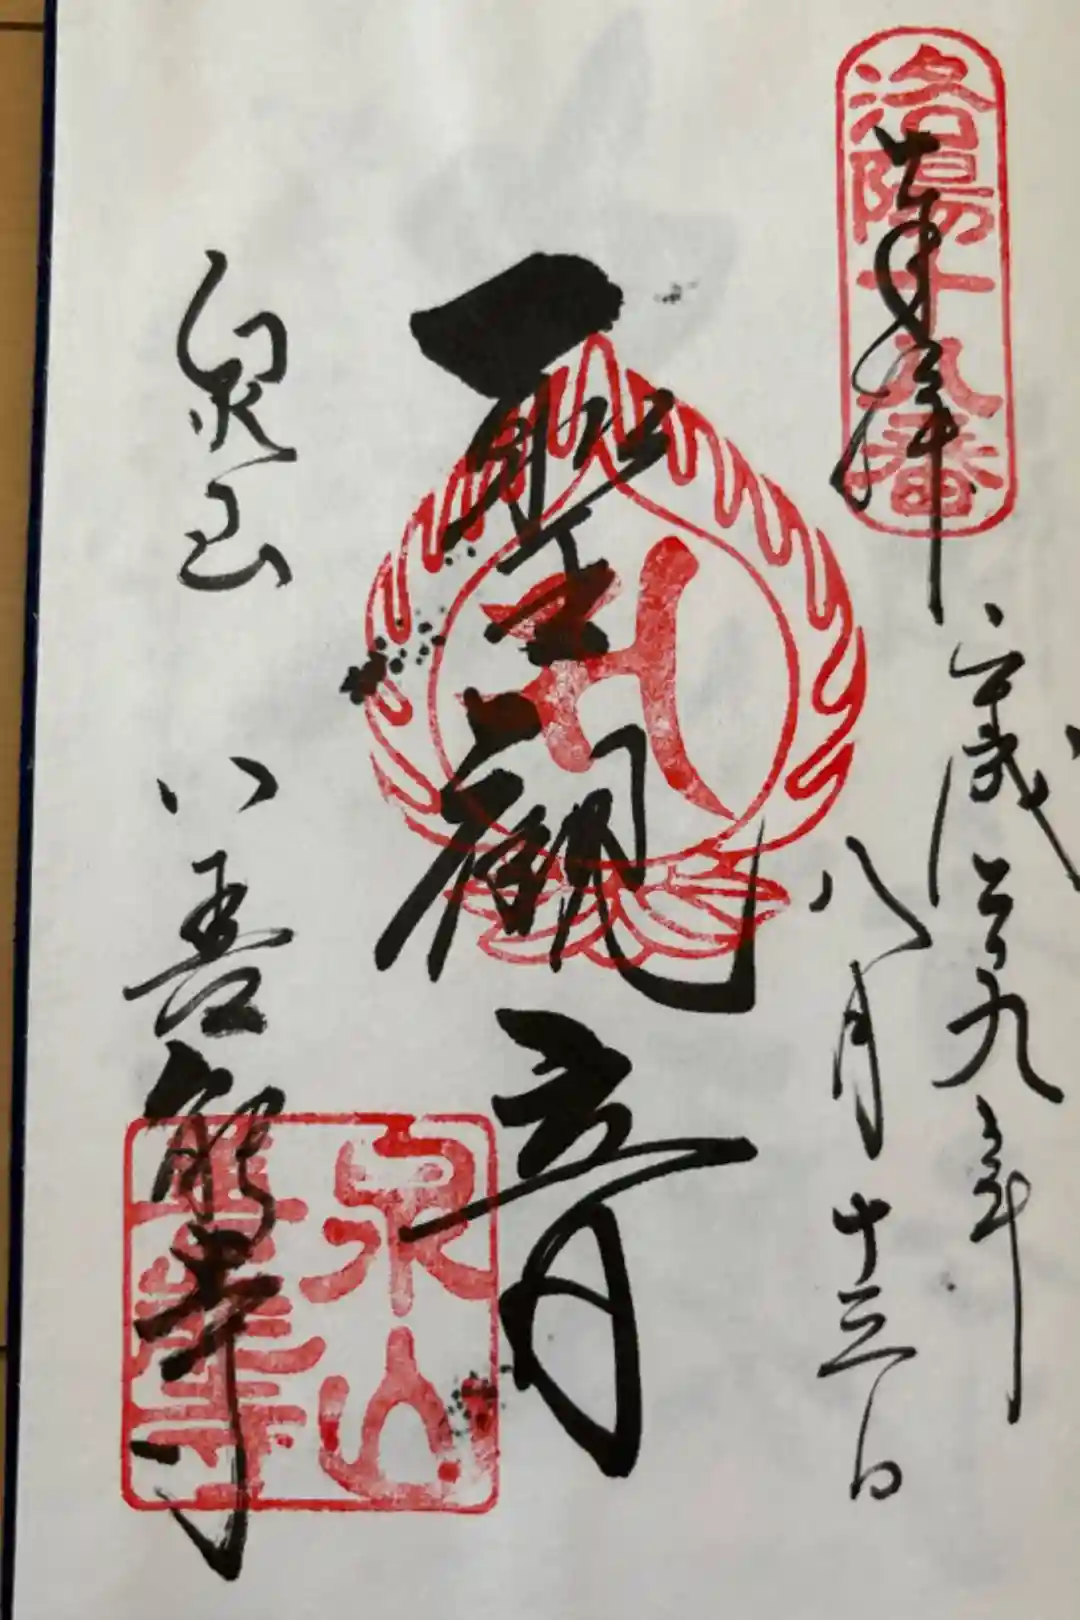 洛陽十八番
奉拝
平成二十九年
八月十三日
聖観音
泉山
善能寺
泉山
善能寺